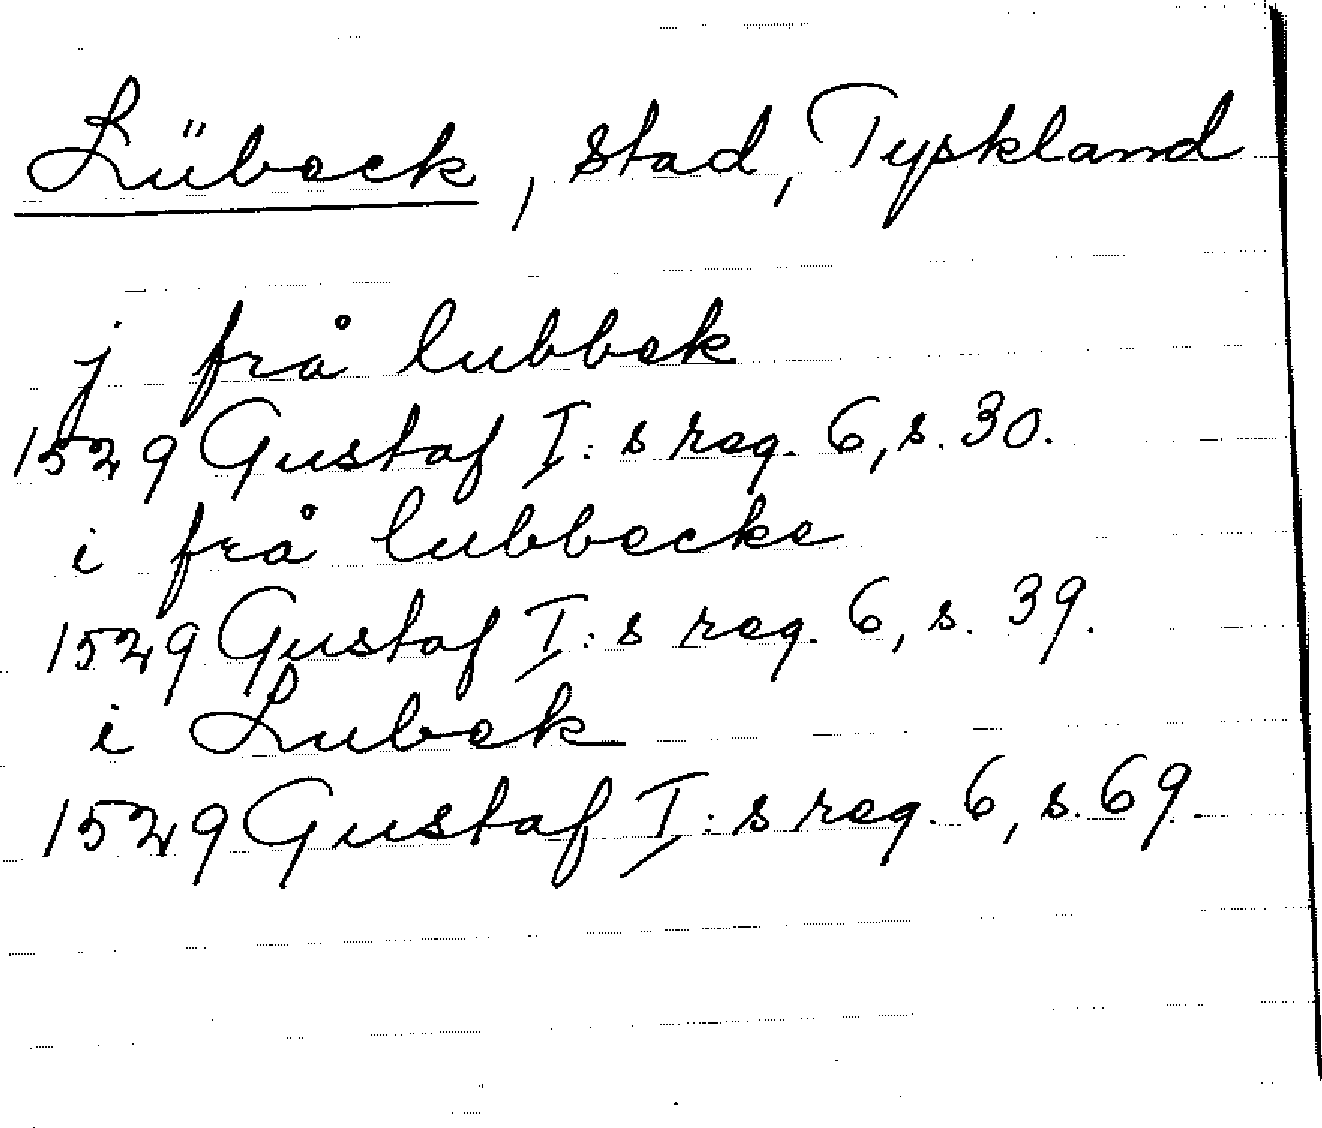 Lübeck, stad, Tyskland
j frå lubbek
1529 Gustaf I:s reg. 6, s. 30.
i frå lubbecke
1529 Gustaf I:s reg. 6, s. 39.
i Lubek
1529 Gustaf I:s reg. 6, s. 69